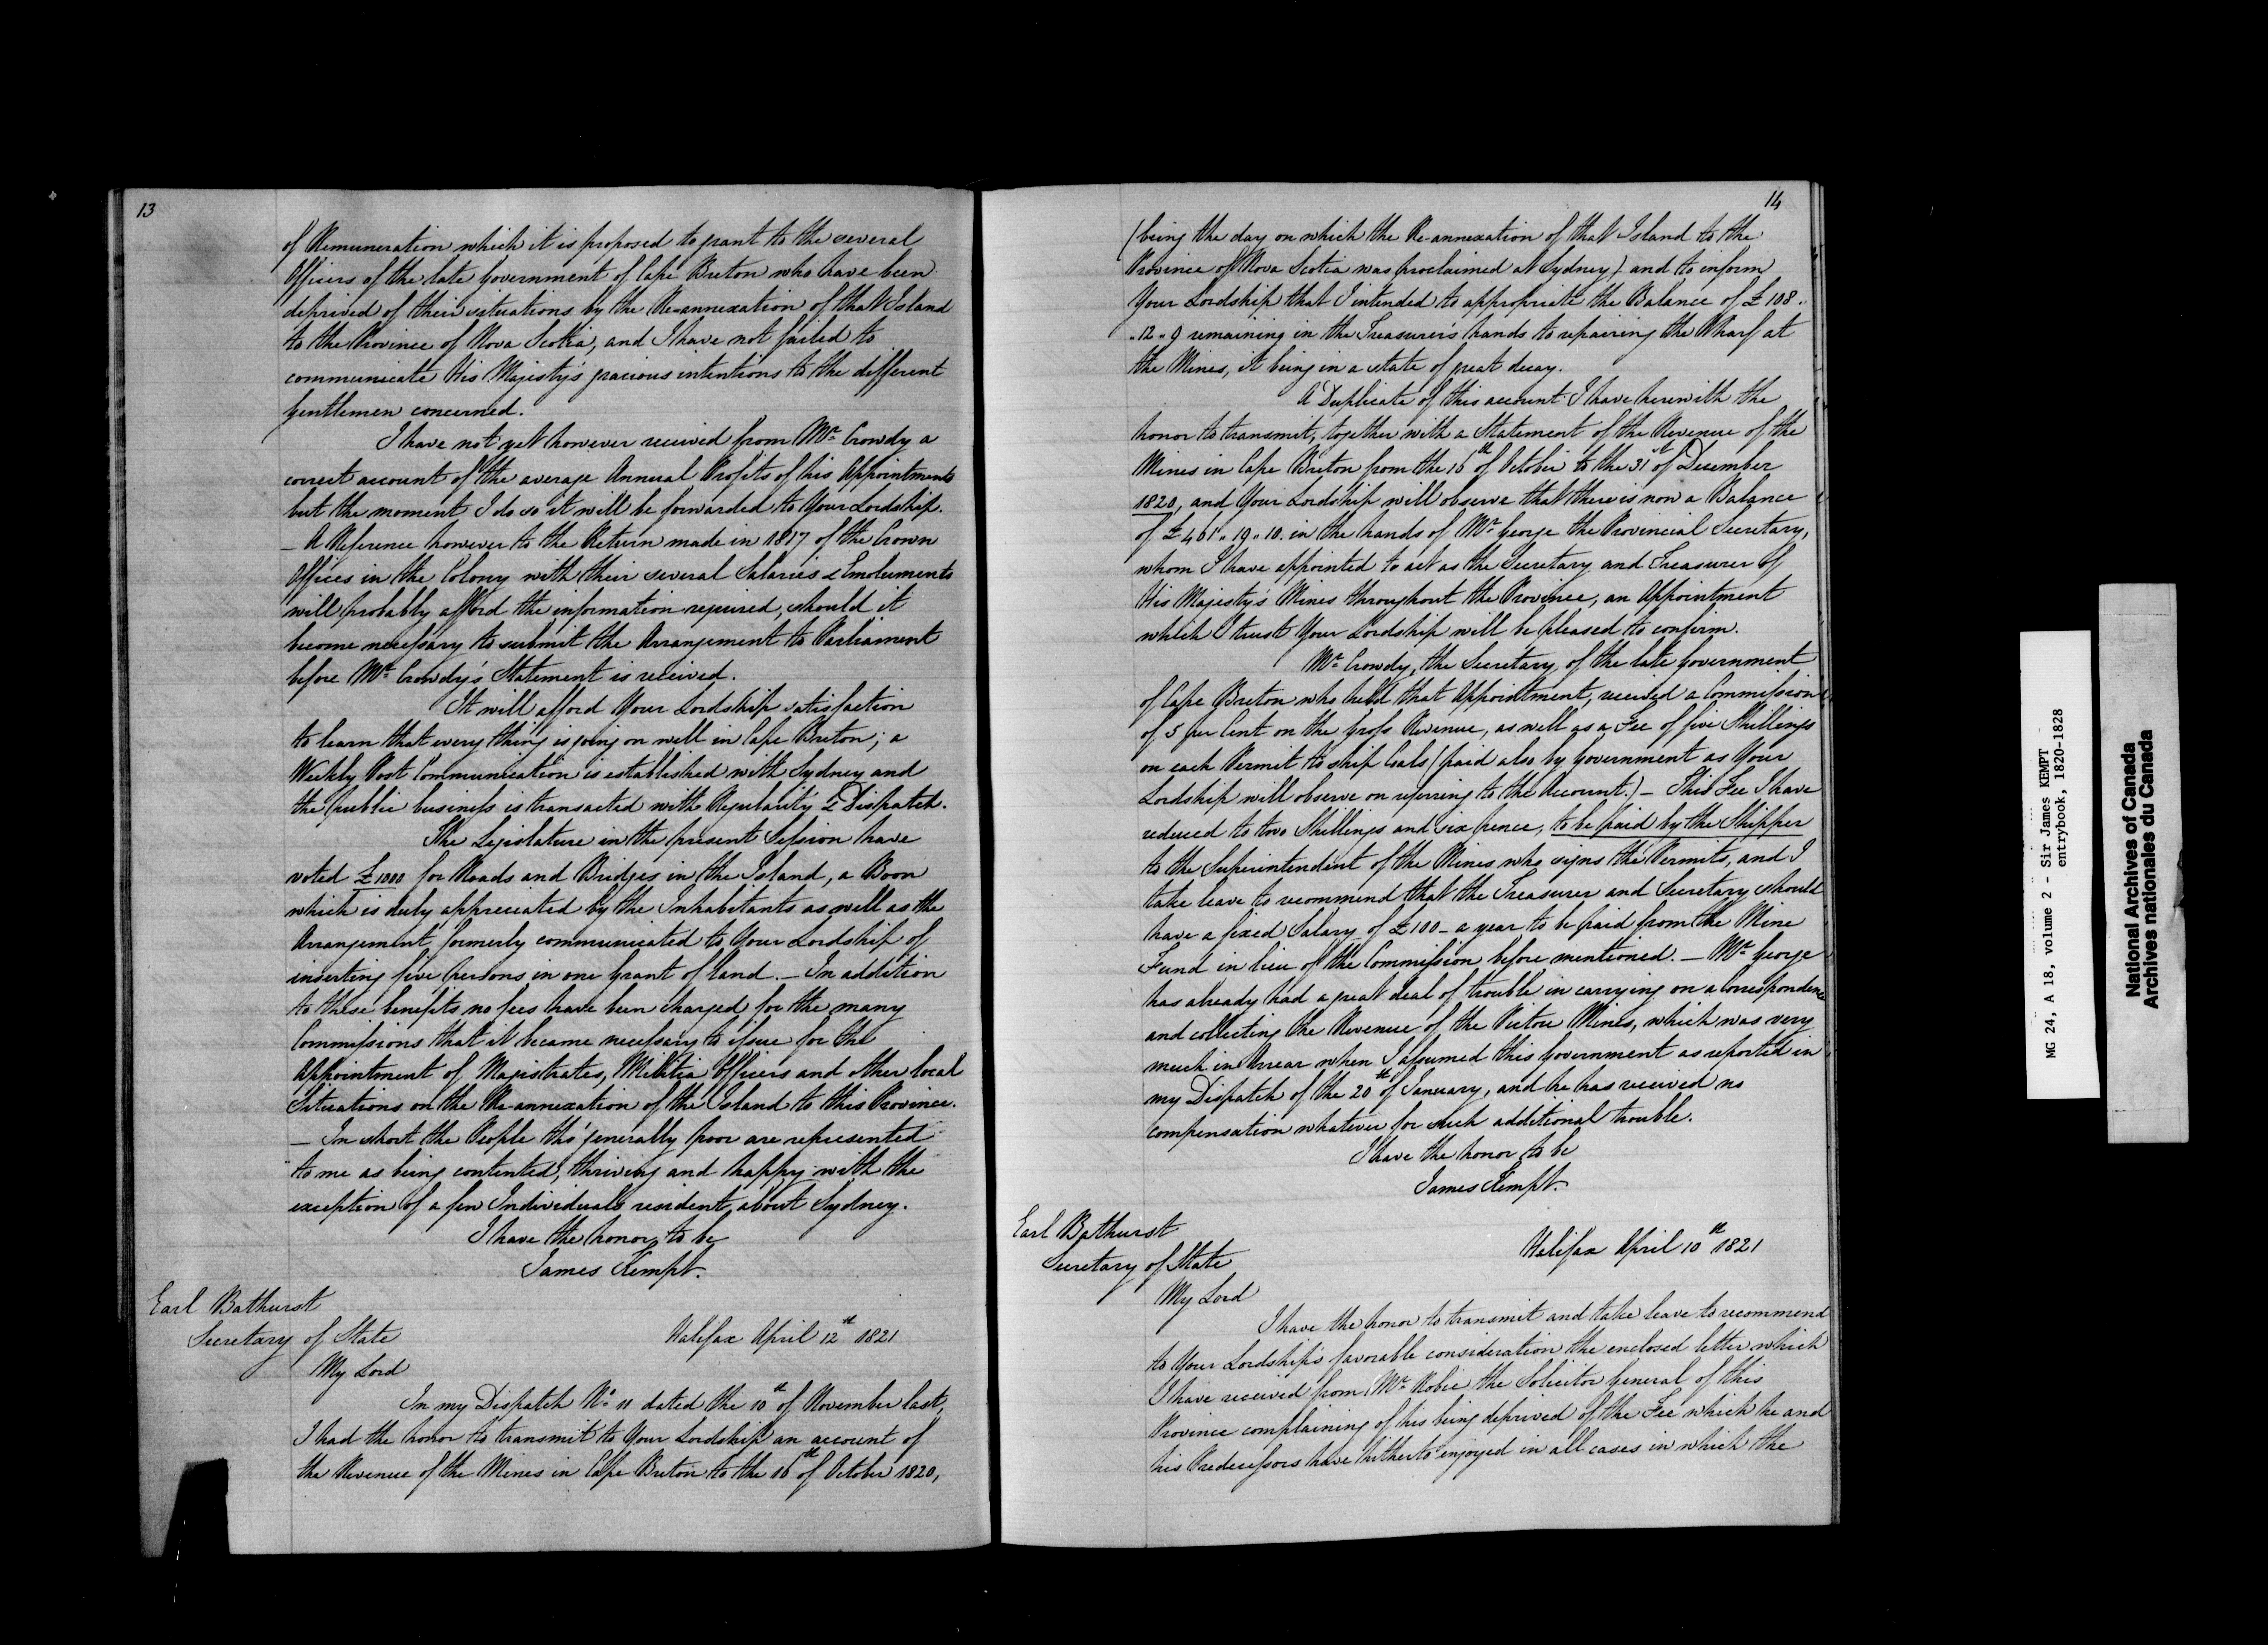 13
of Remuneration which it is proposed to grant to the several
Officers of the late Government of Cape Breton who have been
deprived of their situations by the Re-annexation of that Island
to the Province of Nova Scotia, and I have not failed to
communicate His Majesty's gracious intentions to the different
Gentlemen concerned.
I have not yet however received from Mr. Crowdy a
correct account of the average Annual Profits of his Appointments
but the moment I do so it will be forwarded to Your Lordship.
- A Reference however to the Return made in 1817 of the Crown
Offices in the Colony with their several Salaries & Emoluments
will probably afford the information required, should it
become necessary to submit the Arrangement to Parliament
before Mr. Crowdy's Statement is received.
It will afford Your Lordship satisfaction
to learn that every thing is going on well in Cape Breton; a
Weekly Post Communication is established with Sydney and
the public business is transacted with Regularity & Dispatch.
The Legislature in the present Session have
voted £1000 for Roads and Bridges in the Island, a Boon
which is duly appreciated by the Inhabitants as well as the
Arrangement formerly communicated to Your Lordship of
inserting five persons in one Grant of Land. - In addition
to these benefits no fees have been charged for the many
Commissions that it became necessary to issue for the
Appointment of Magistrates, Militia Officers and other local
Situations on the Re-annexation of the Island to this Province.
- In short the People tho' generally poor are represented
to me as being contented, thriving and happy with the
exception of a few Individuals resident about Sydney.
I have the honor to be
James Kempt.
Earl Bathurst
Secretary of State
Halifax April 12th 1821
My Lord
In my Dispatch No. 11 dated the 10th of November last,
I had the honor to transmit to Your Lordship an account of
the Revenue of the Mines in Cape Breton to the 16th of October 1820,
14
(being the day on which the Re-annexation of that Island to the
Province of Nova Scotia was proclaimed at Sydney) and to inform
Your Lordship that I intended to appropriate the Balance of £108.
"12"9 remaining in the Treasurer's hands to repairing the Wharf at
the Mines, it being in a state of great decay.
A Duplicate of this account I have herewith the
honor to transmit, together with a Statement of the Revenue of the
Mines in Cape Breton from the 16th of October to the 31st of December
1820, and Your Lordship will observe that there is now a Balance
of £461"19"10. in the hands of Mr. George the Provincial Secretary,
whom I have appointed to act as the Secretary and Treasurer of
His Majesty's Mines throughout the Province, an Appointment
which I trust Your Lordship will be pleased to confirm.
Mr. Crowdy, the Secretary of the late Government
of Cape Breton who held that Appointment, received a Commission
of 5 per Cent on the Gross Revenue, as well as a Fee of five Shillings
on each Permit to ship Coals (paid also by Government as Your
Lordship will observe on referring to the Account.) - This Fee I have
reduced to two Shillings and six pence, to be paid by the Shipper
to the Superintendent of the Mines who signs the Permits, and I
take leave to recommend that the Treasurer and Secretary should
have a fixed Salary of £100 - a year to be paid from the Mine
Fund in lieu of the Commission before mentioned. - Mr. George
has already had a great deal of trouble in carrying on a Correspondence
and collecting the Revenue of the Pictou Mines, which was very
much in Arrear when I assumed this Government as reported in
my Dispatch of the 20th of January, and he has received no
compensation whatever for such additional trouble.
I have the honor to be
James Kempt.
Earl Bathurst
Secretary of State
Halifax April 10th 1821
My Lord
I have the honor to transmit and take leave to recommend
to Your Lordship's favorable consideration the enclosed letter which
I have received from Mr. Robie the Solicitor General of this
Province complaining of his being deprived of the Fee which he and
his Predecessors have hitherto enjoyed in all cases in which the
MG 24, A 18, volume 2 - Sir James KEMPT
entrybook, 1820-1828
National Archives of Canada
Archives nationales du Canada